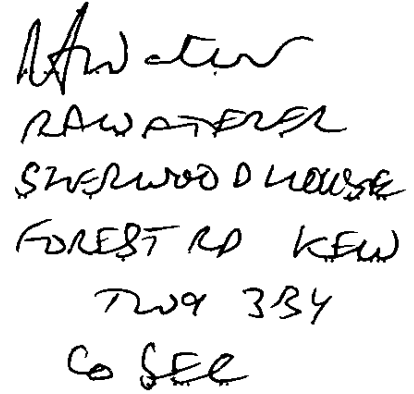 RAWaterer
RAWATERER
SHERWOOD HOUSE
FOREST RD KEW
TW9 3BY
CO SEC